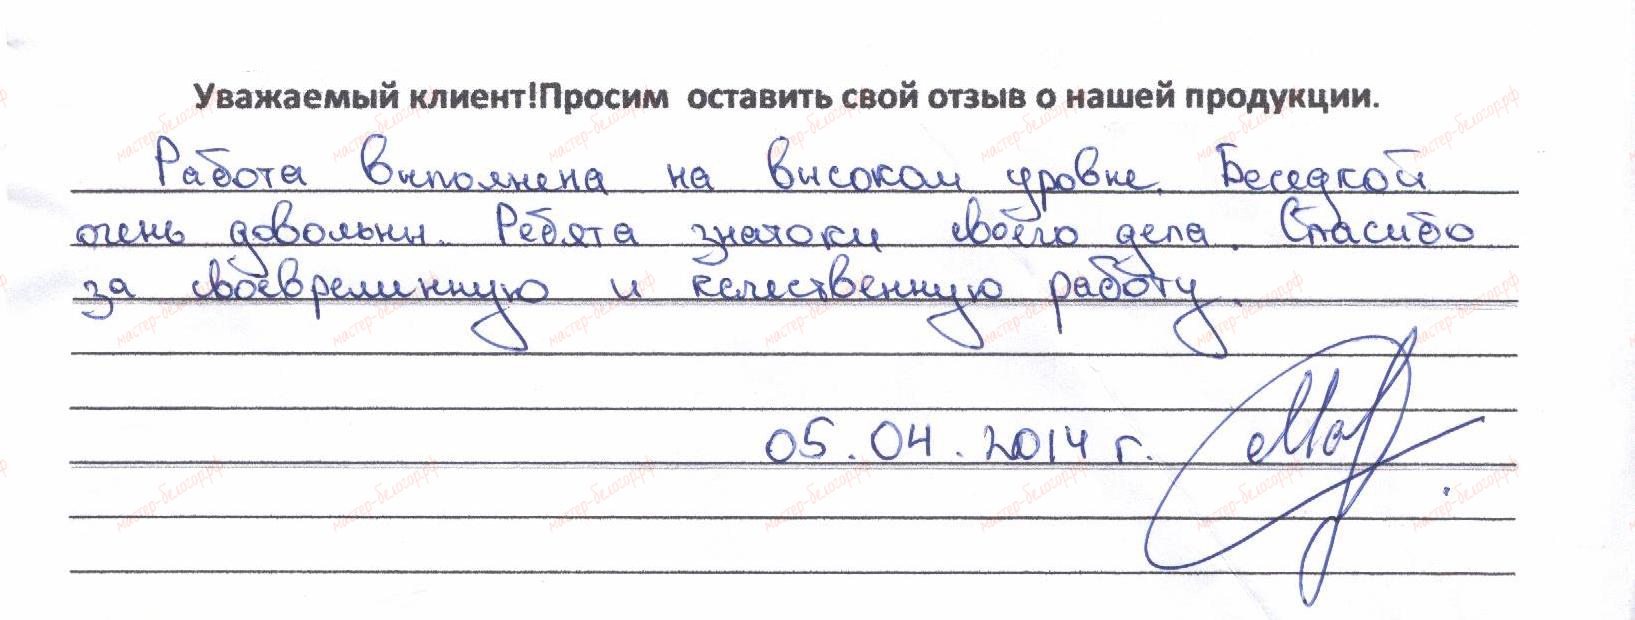 Уважаемый клиент!Просим оставить свой отзыв о нашей продукции.
Работа выполнена на высоком уровне. Беседкой
очень довольны. Ребята знатоки своего дела. Спасибо
за своевременную и качественную работу.
05.04.2014 г.